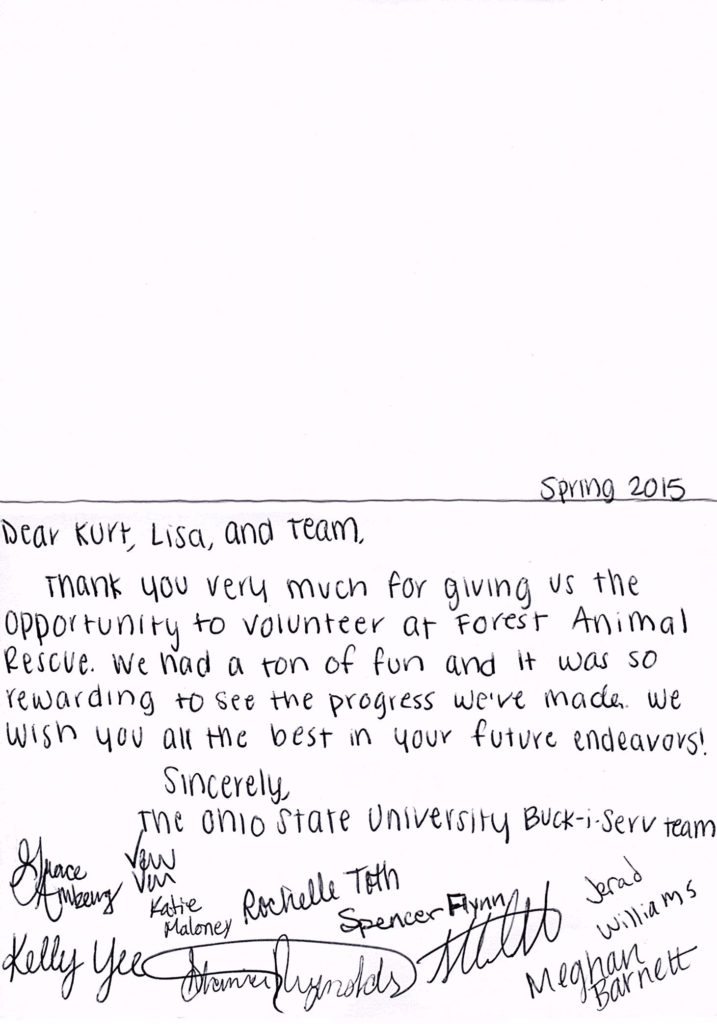 Spring 2015
Dear Kurt, Lisa, and Team,
Thank you very much for giving us the
opportunity to volunteer at Forest Animal
Rescue. We had a ton of fun and it was so
rewarding to see the progress we've made. We
wish you all the best in your future endeavors!
Sincerely,
The Ohio State University Buck-i-Serv team
Grace
Katie
Maloney
Rochelle Toth
Spencer Flynn
Jerad
Williams
Kelly Yee
Reynolds
Meghan
Barnett